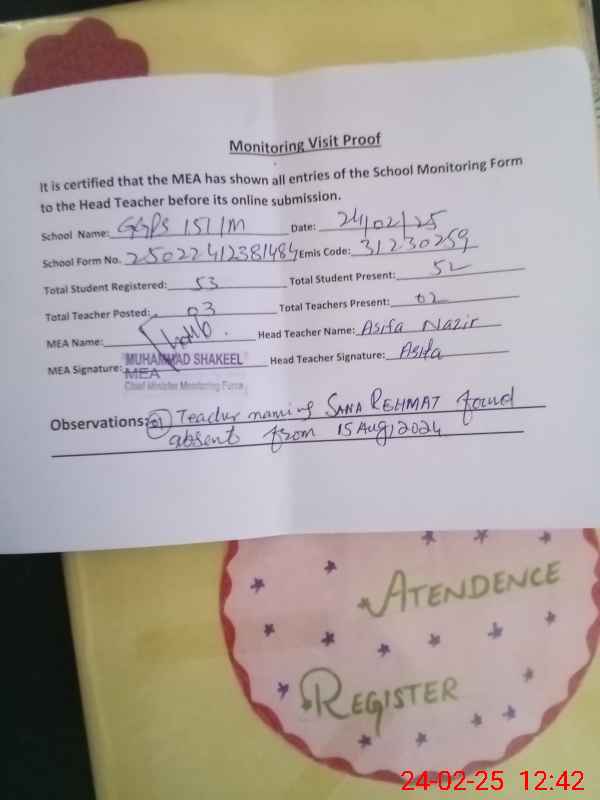 Monitoring Visit Proof
It is certified that the MEA has shown all entries of the School Monitoring Form
to the Head Teacher before its online submission.
School Name: GGPS 151/M Date: 24/02/25
School Form No. 25022412381484 Emis Code: 31230259
Total Student Registered: 53 Total Student Present: 52
Total Teacher Posted: 03 Total Teachers Present: 02
MEA Name: Head Teacher Name: Asifa Nazir
MUHAMMAD SHAKEEL
MEA Signature: MEA Head Teacher Signature: Asifa
Chief Minister Monitoring Force
Observations: 01 Teacher naming SANA REHMAT found
absent from 15 Aug, 2024
ATENDENCE
REGISTER
24-02-25 12:42